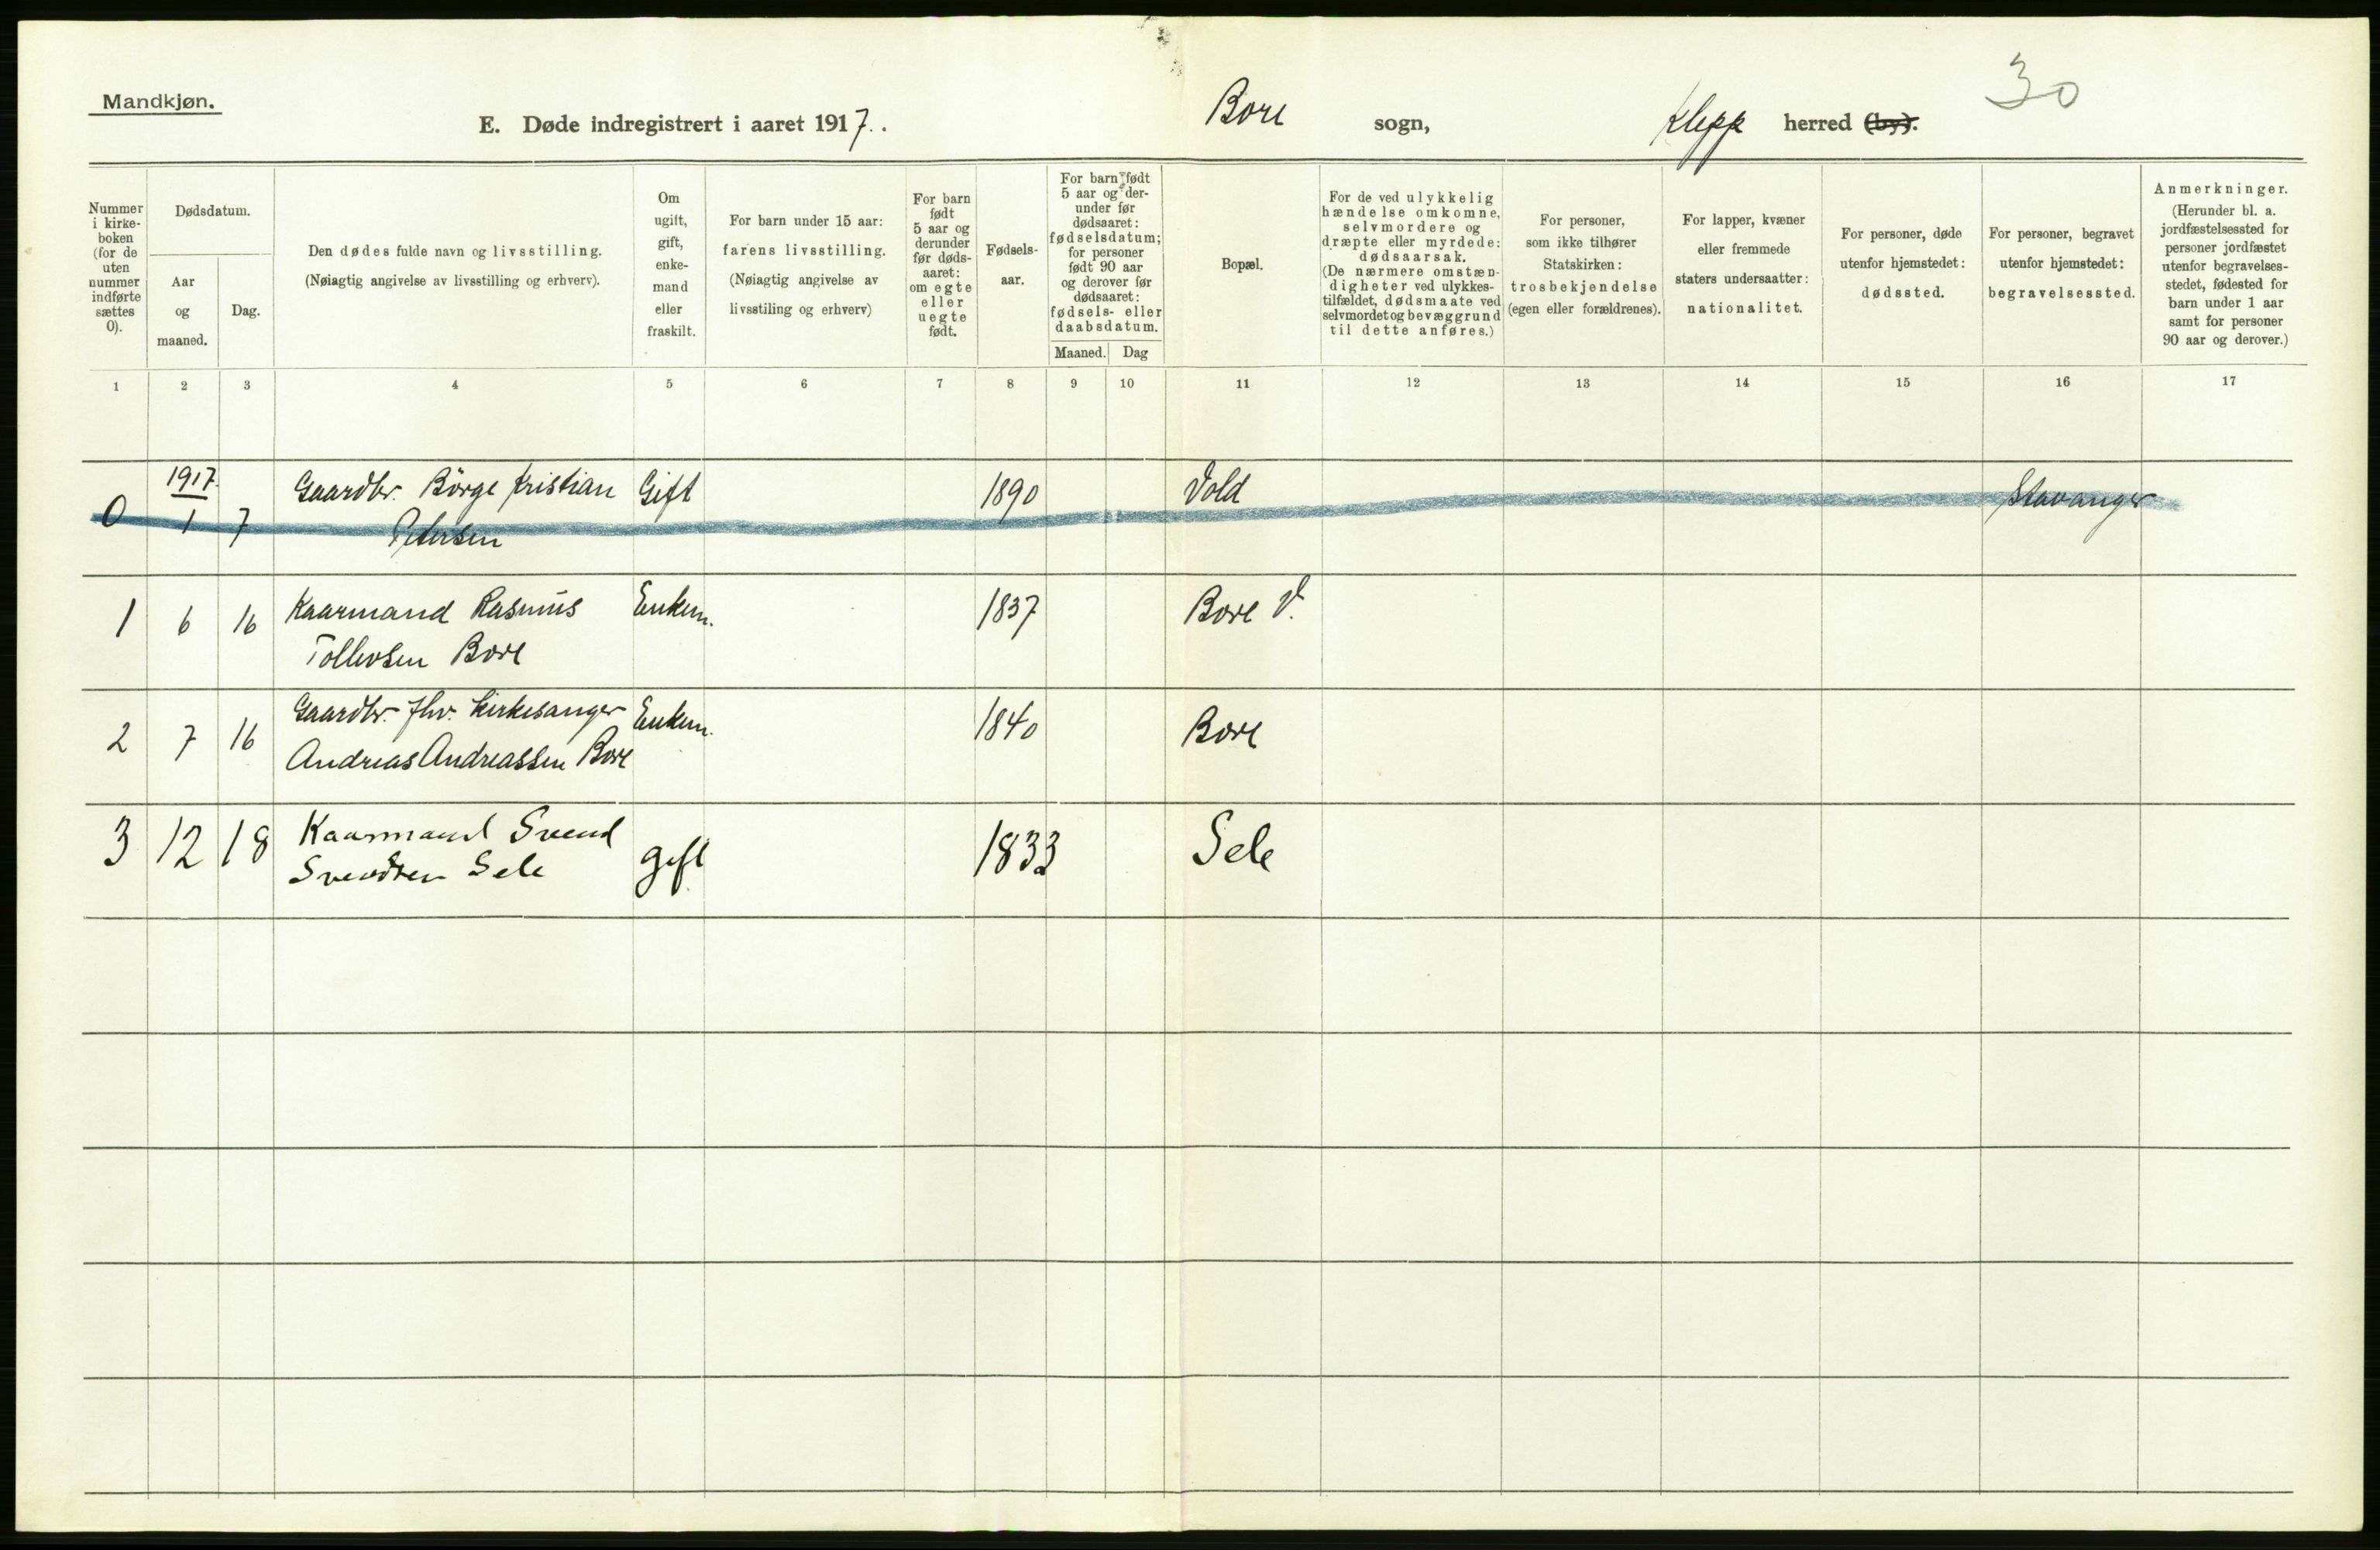 Mandkjøn.
E. Døde indregistrert i aaret 1917. Bore sogn, Klepp herred (by).
30
Nummer i kirke- boken (for de uten nummer indførte sættes 0).
Dødsdatum.
Aar og maaned.
Dag.
Den dødes fulde navn og livsstilling.
(Nøiagtig angivelse av livsstilling og erhverv).
Om ugift, gift, enke- mand eller fraskilt.
For barn under 15 aar: farens livsstilling.
(Nøiagtig angivelse av livsstiling og erhverv)
For barn født 5 aar og derunder før døds- aaret: om egte eller uegte født.
Fødsels- aar.
For barn født 5 aar og der- under før dødsaaret: fødselsdatum; for personer født 90 aar og derover før dødsaaret: fødsels- eller daabsdatum.
Maaned. Dag
Bopæl.
For de ved ulykkelig hændelse omkomne, selvmordere og dræpte eller myrdede: dødsaarsak.
(De nærmere omstæn- digheter ved ulykkes- tilfældet, dødsmaate ved selvmordet og bevæggrund til dette anføres.)
For personer, som ikke tilhører Statskirken: trosbekjendelse (egen eller forældrenes).
For lapper, kvæner eller fremmede staters undersaatter: nationalitet.
For personer, døde utenfor hjemstedet: dødssted.
For personer, begravet utenfor hjemstedet: begravelsessted.
Anmerkninger.
(Herunder bl. a. jordfæstelsessted for personer jordfæstet utenfor begravelses- stedet, fødested for barn under 1 aar samt for personer 90 aar og derover.)
1 2 3 4 5 6 7 8 9 10 11 12 13 14 15 16 17
1917.
0 1 7 Gaardbr. Börge Kristian Gift 1890 Vold Stavanger
Petersen
1 6 16 Kaarmand Rasmus Enkem. 1837 Bore V.
Tollevsen Bore
2 7 16 Gaardbr. fhv. Kirkesanger Enkem. 1840 Bore
Andreas Andreassen Bore
3 12 18 Kaarmand Svend gift 1833 Sele
Svendsen Sele